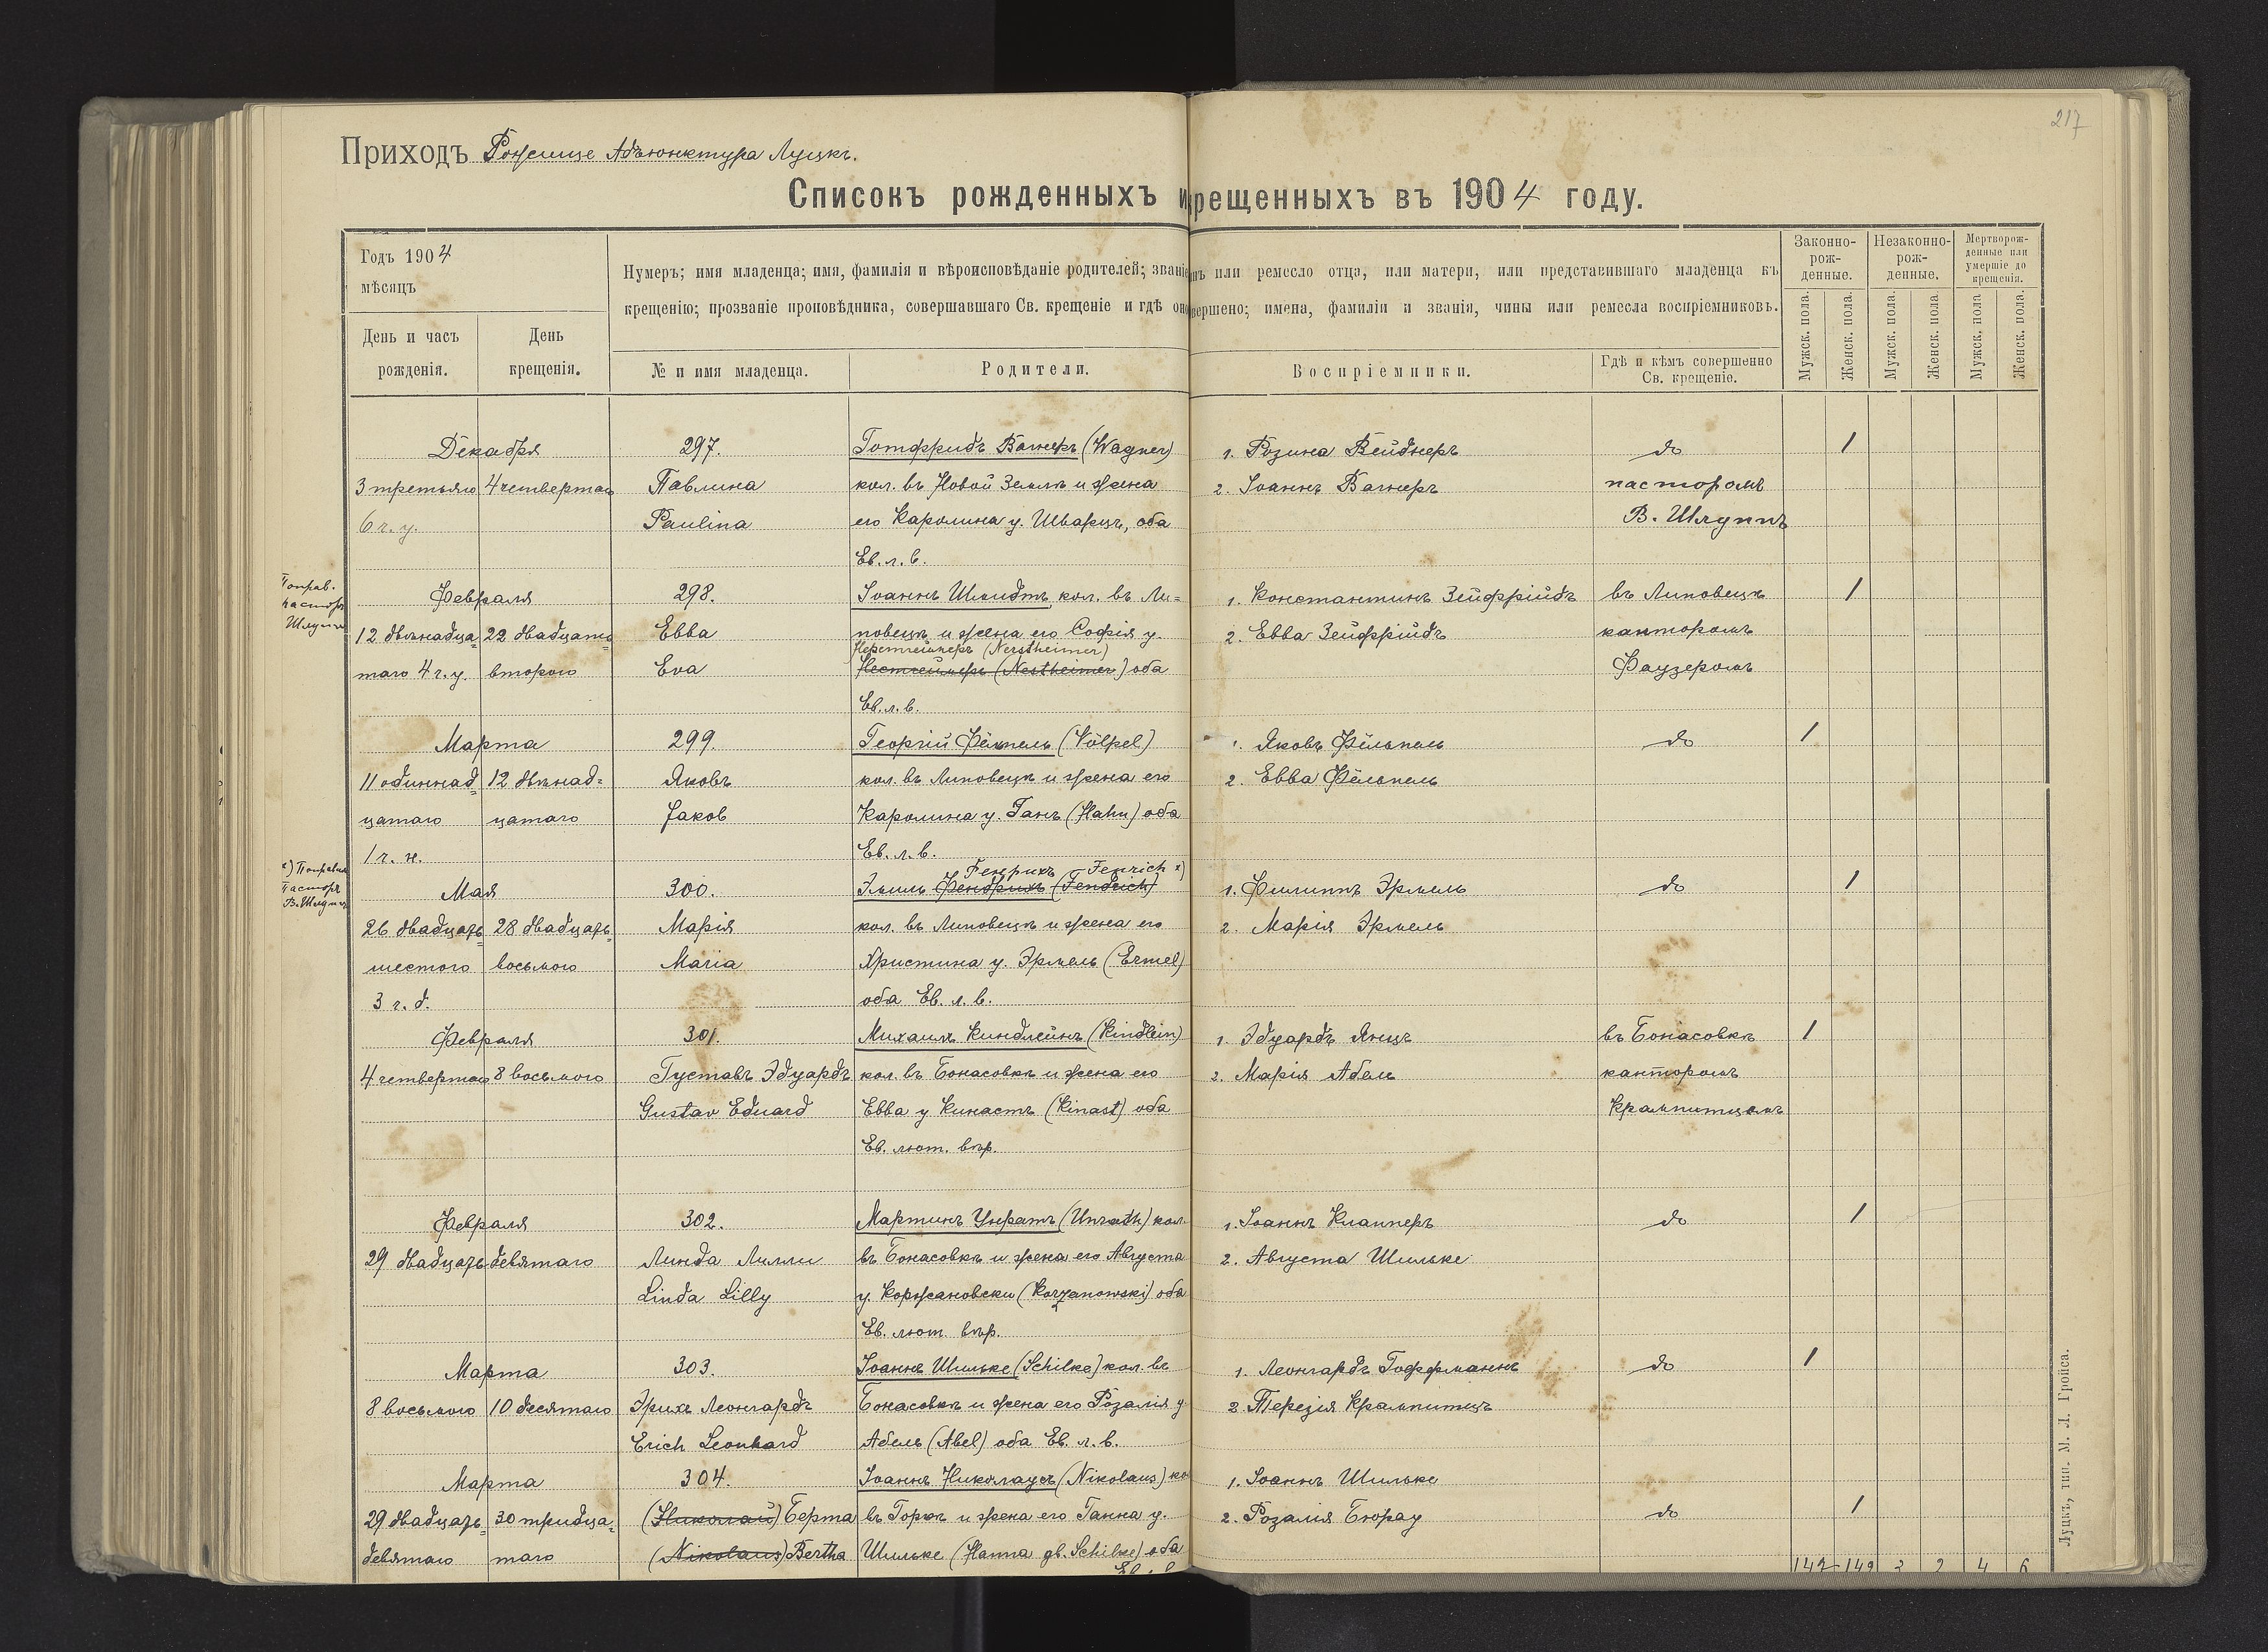 217
Приходъ Рожище Адъюнктура Луцкъ.
Списокъ рожденныхъ и крещенныхъ въ 1904 году.
Годъ 1904
мѣсяцъ
День и часъ
рожденія.
День
крещенія.
Нумеръ; имя младенца; имя, фамилія и вѣроисповѣданіе родителей; званіе чинъ или ремесло отца, или матери, или представившаго младенца къ
крещенію; прозваніе проповѣдника, совершавшаго Св. крещеніе и гдѣ оно совершено; имена, фамиліи и званія, чины или ремесла воспріемниковъ.
№ и имя младенца.
Родители.
Воспріемники.
Гдѣ и кѣмъ совершенно
Св. крещеніе.
Законно-
рож-
денные.
Незаконно-
рож-
денные.
Мертворож-
денные или
умершіе до
крещенія.
Мужск. пола.
Женск. пола.
Мужск. пола.
Женск. пола.
Мужск. пола.
Женск. пола.
Декабря 297. Готфридъ Вагнеръ (Wagner) 1. Розина Вейднеръ до 1
3 третьяго 4 четвертаго Павлина кол. въ Новой Землѣ и жена 2. Іоаннъ Вагнеръ пасторомъ
6 ч. у. Paulina его Каролина у. Шварцъ, оба В. Шлуппъ
Ев. л. в.
Поправ.
пасторъ
Шлуппъ
Февраля 298. Іоаннъ Шмидтъ, кол. въ Ли= 1. Константинъ Зейффрійдъ въ Липовецкъ 1
12 двѣнадца= 22 двадцать Евва повецкъ и жена его Софія у. 2. Евва Зейффрійдъ канторомъ
Нерстгеймеръ (Nerstheimer)
таго 4 ч. у. второго Eva Нестгеймеръ (Nestheimer) оба Фаузеромъ
Ев. л. в.
Марта 299. Георгій Фёльпель (Völpel) 1. Яковъ Фёльпель до 1
11 одиннад= 12 двѣнад= Яковъ кол. въ Липовецкъ и жена его 2. Евва Фёльпель
цатаго цатаго Jakob Каролина у. Ганъ (Hahn) оба
1 ч. н. Ев. л. в.
х) Поправилъ
Пасторъ
В. Шлуппъ
Фенрихъ Fenrich х)
Мая 300. Эмиль Фендрихъ (Fendrich) 1. Филиппъ Эрмель до 1
26 двадцать= 28 двадцать= Марія кол. въ Липовецкъ и жена его 2. Марія Эрмель
шестого восьмого Maria Христина у. Эрмель (Ermel)
3 ч. д. оба Ев. л. в.
Февраля 301. Михаилъ Киндлейнъ (Kindlein) 1. Эдуардъ Янцъ въ Бонасовкѣ 1
4 четвертаго 8 восьмого Густавъ Эдуардъ кол. въ Бонасовкѣ и жена его 2. Марія Абель канторомъ
Gustav Eduard Евва у Кинастъ (Kinast) оба Крампитцемъ
Ев. лют. вѣр.
Февраля 302. Мартинъ Унратъ (Unrath) кол. 1. Іоаннъ Клапперъ до 1
29 двадцать девятаго Линда Лилли въ Бонасовкѣ и жена его Августа 2. Августа Шильке
Linda Lilly у. Коржановски (Korzanowski) оба
Ев. лют. вѣр.
Марта 303. Іоаннъ Шильке (Schilke) кол. въ 1. Леонгардъ Гоффманнъ до 1
8 восьмого 10 десятаго Эрихъ Леонгардъ Бонасовкѣ и жена его Розалія у 2. Терезія Крампитцъ
Erich Leonhard Абель (Abel) оба Ев. л. в.
Марта 304. Іоаннъ Николаусъ (Nikolaus) ко 1. Іоаннъ Шильке
29 двадцать= 30 тридца= (Николай) Берта въ Горкѣ и жена его Ганна у. 2. Розалія Бюрау до 1
девятаго таго (Nikolaus) Bertha Шильке (Hanna gb. Schilke) оба
147 149 3 2 4 6
Луцкъ, тип. М. Л. Гройса.